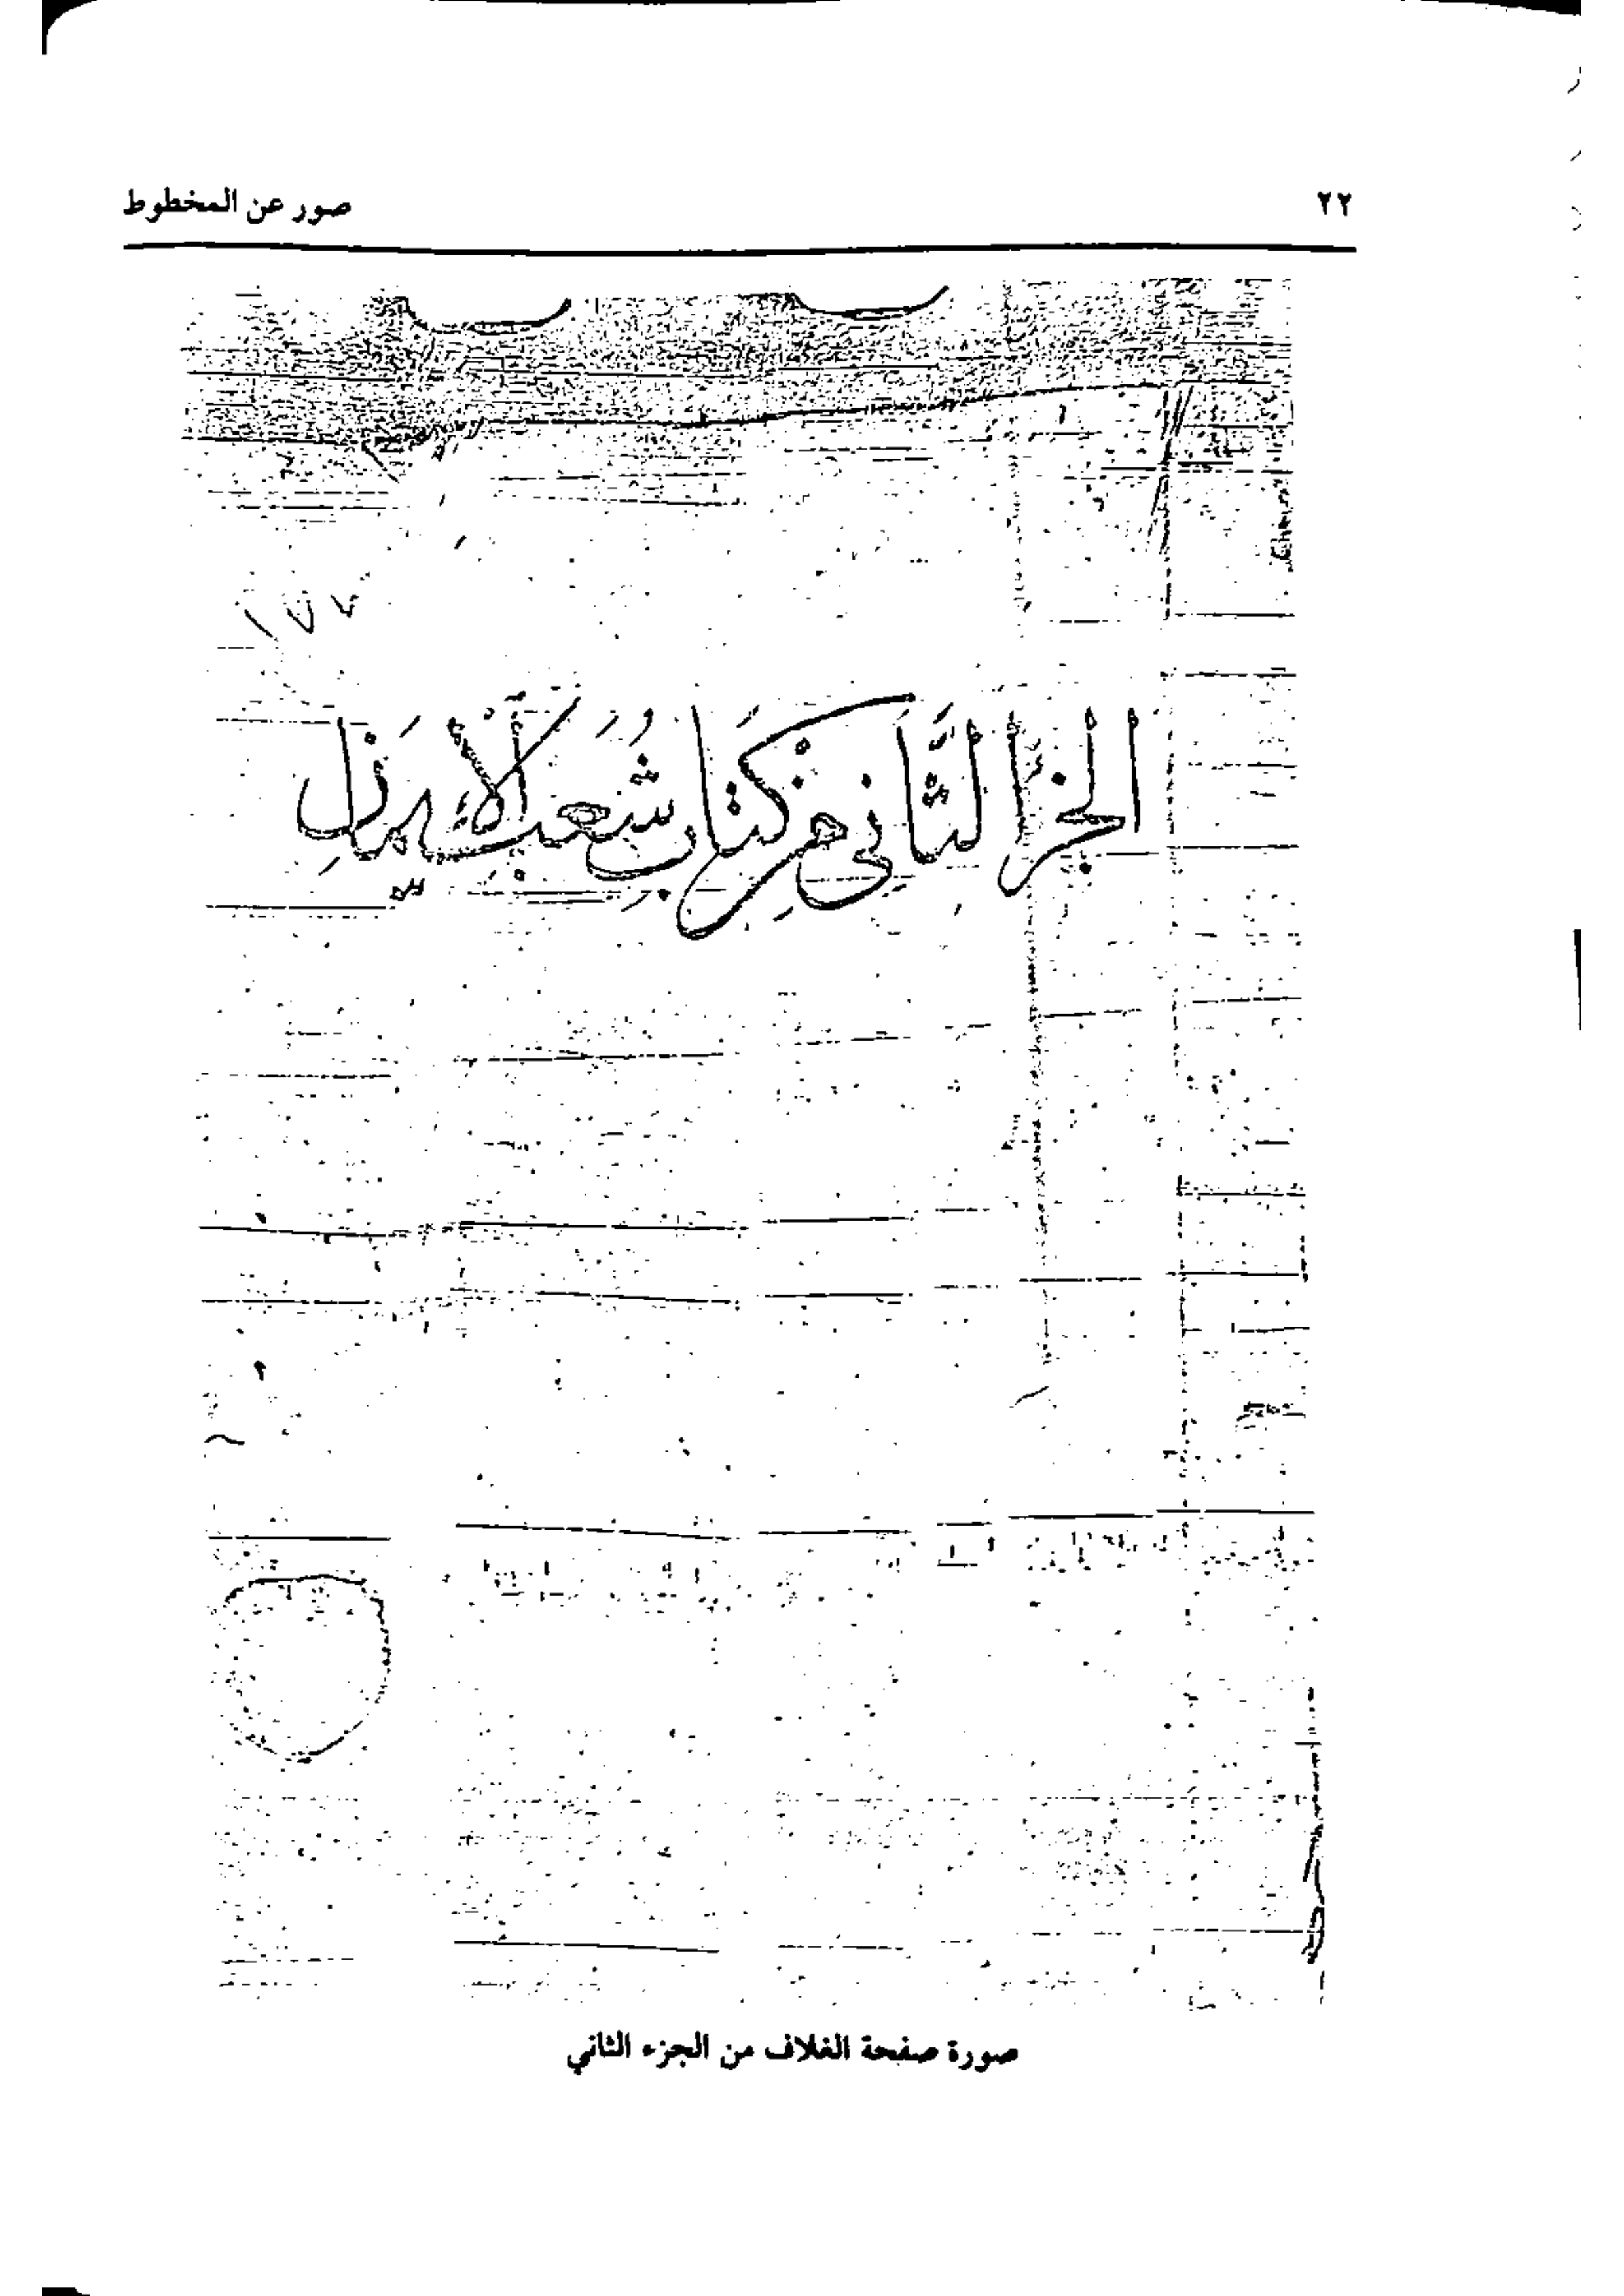 ٢٢ صور عن المخطوط
١٧٧
الجزا الثاني من كتاب شعب الايمان
صورة صفحة الغلاف من الجزء الثاني